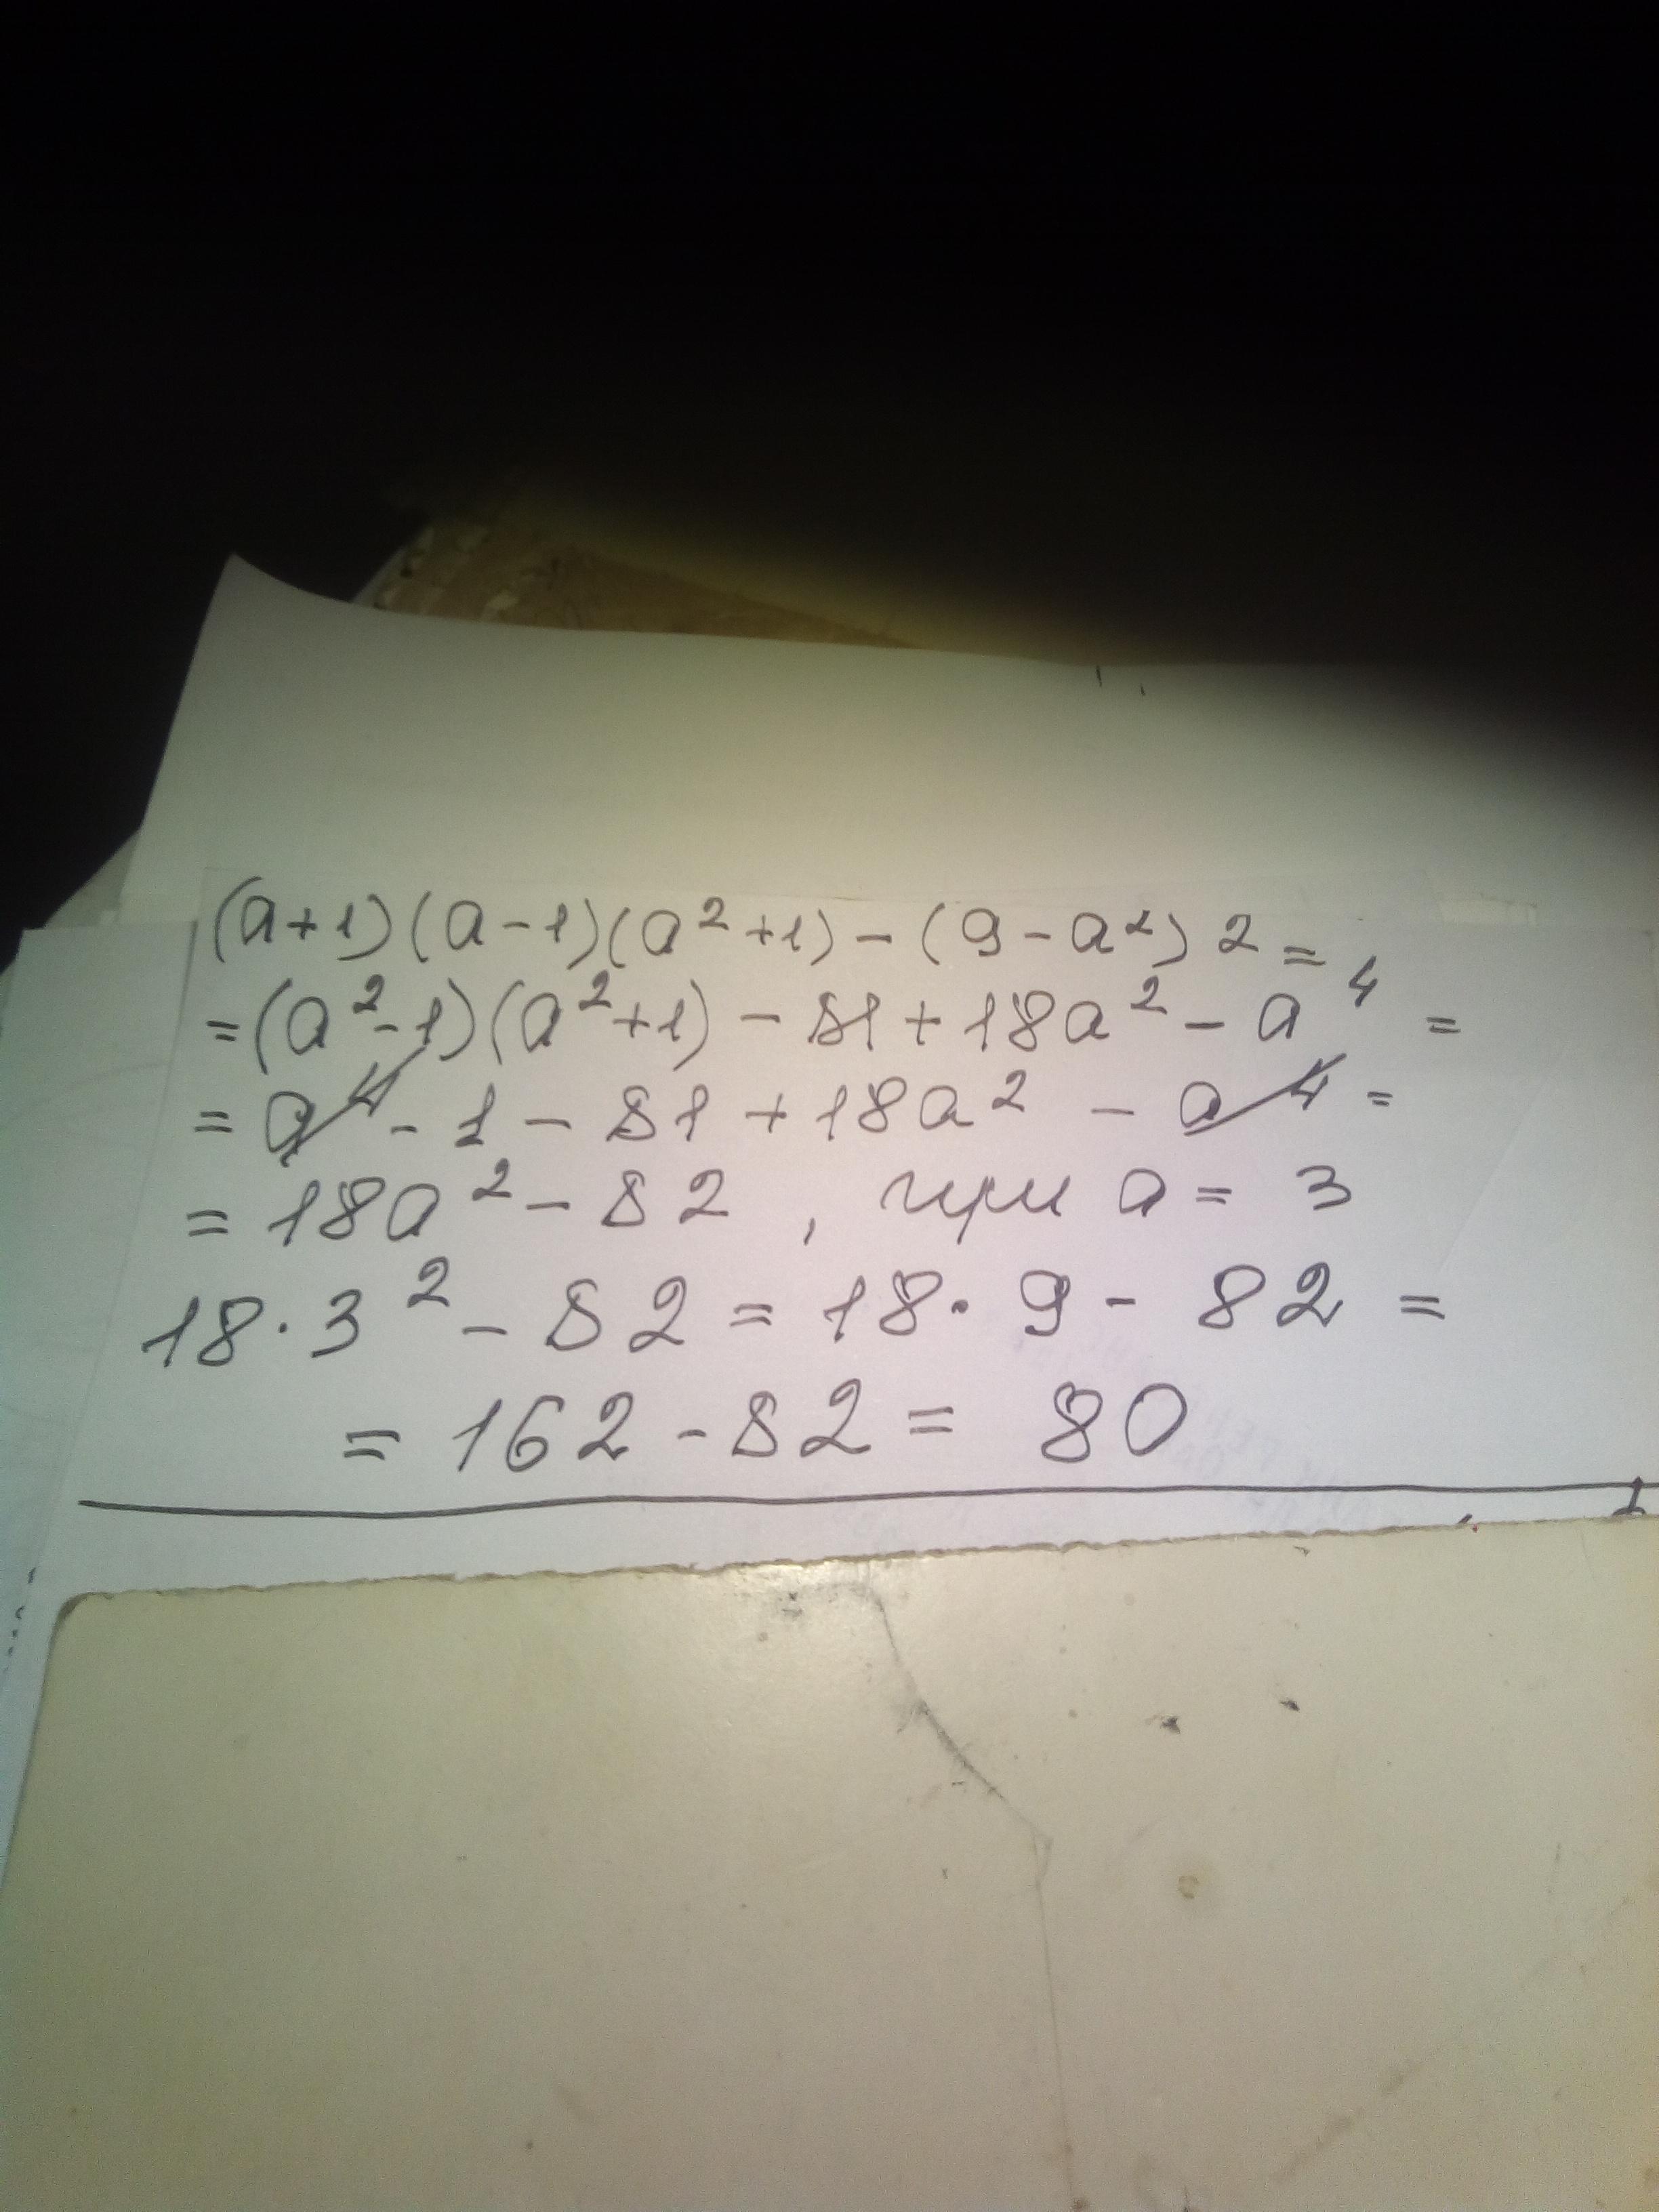 (a+1)(a-1)(a²+1)-(9-a²)2=
=(a²-1)(a²+1)-81+18a²-a⁴=
=a⁴-1-81+18a²-a⁴=
=18a²-82, при a=3
18·3²-82=18·9-82=
=162-82=80